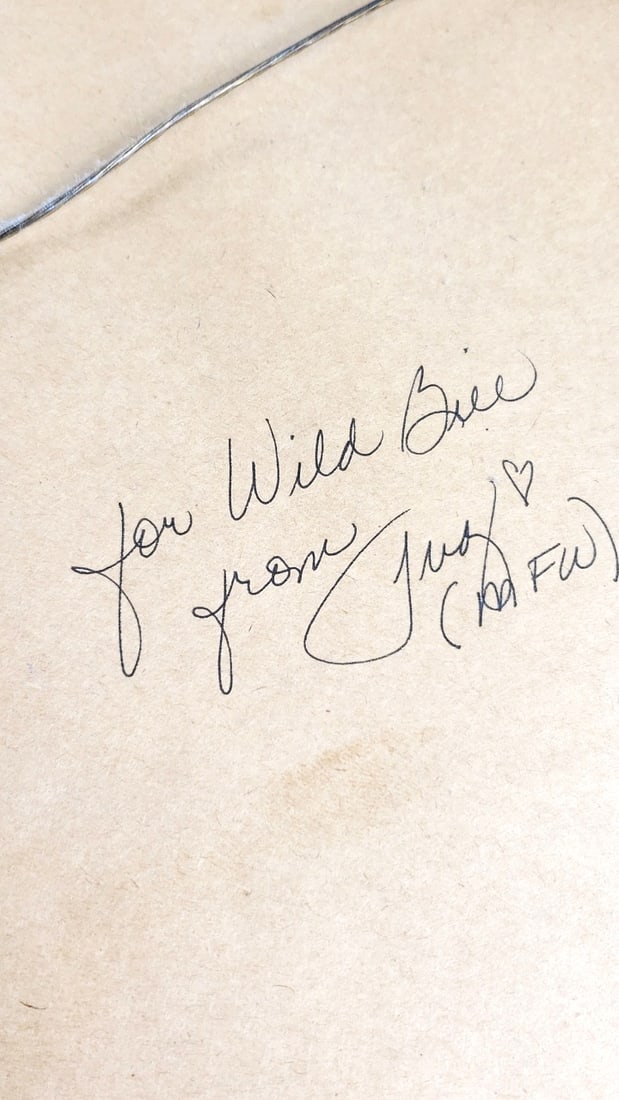 for Wild Bill
from Judy ♡